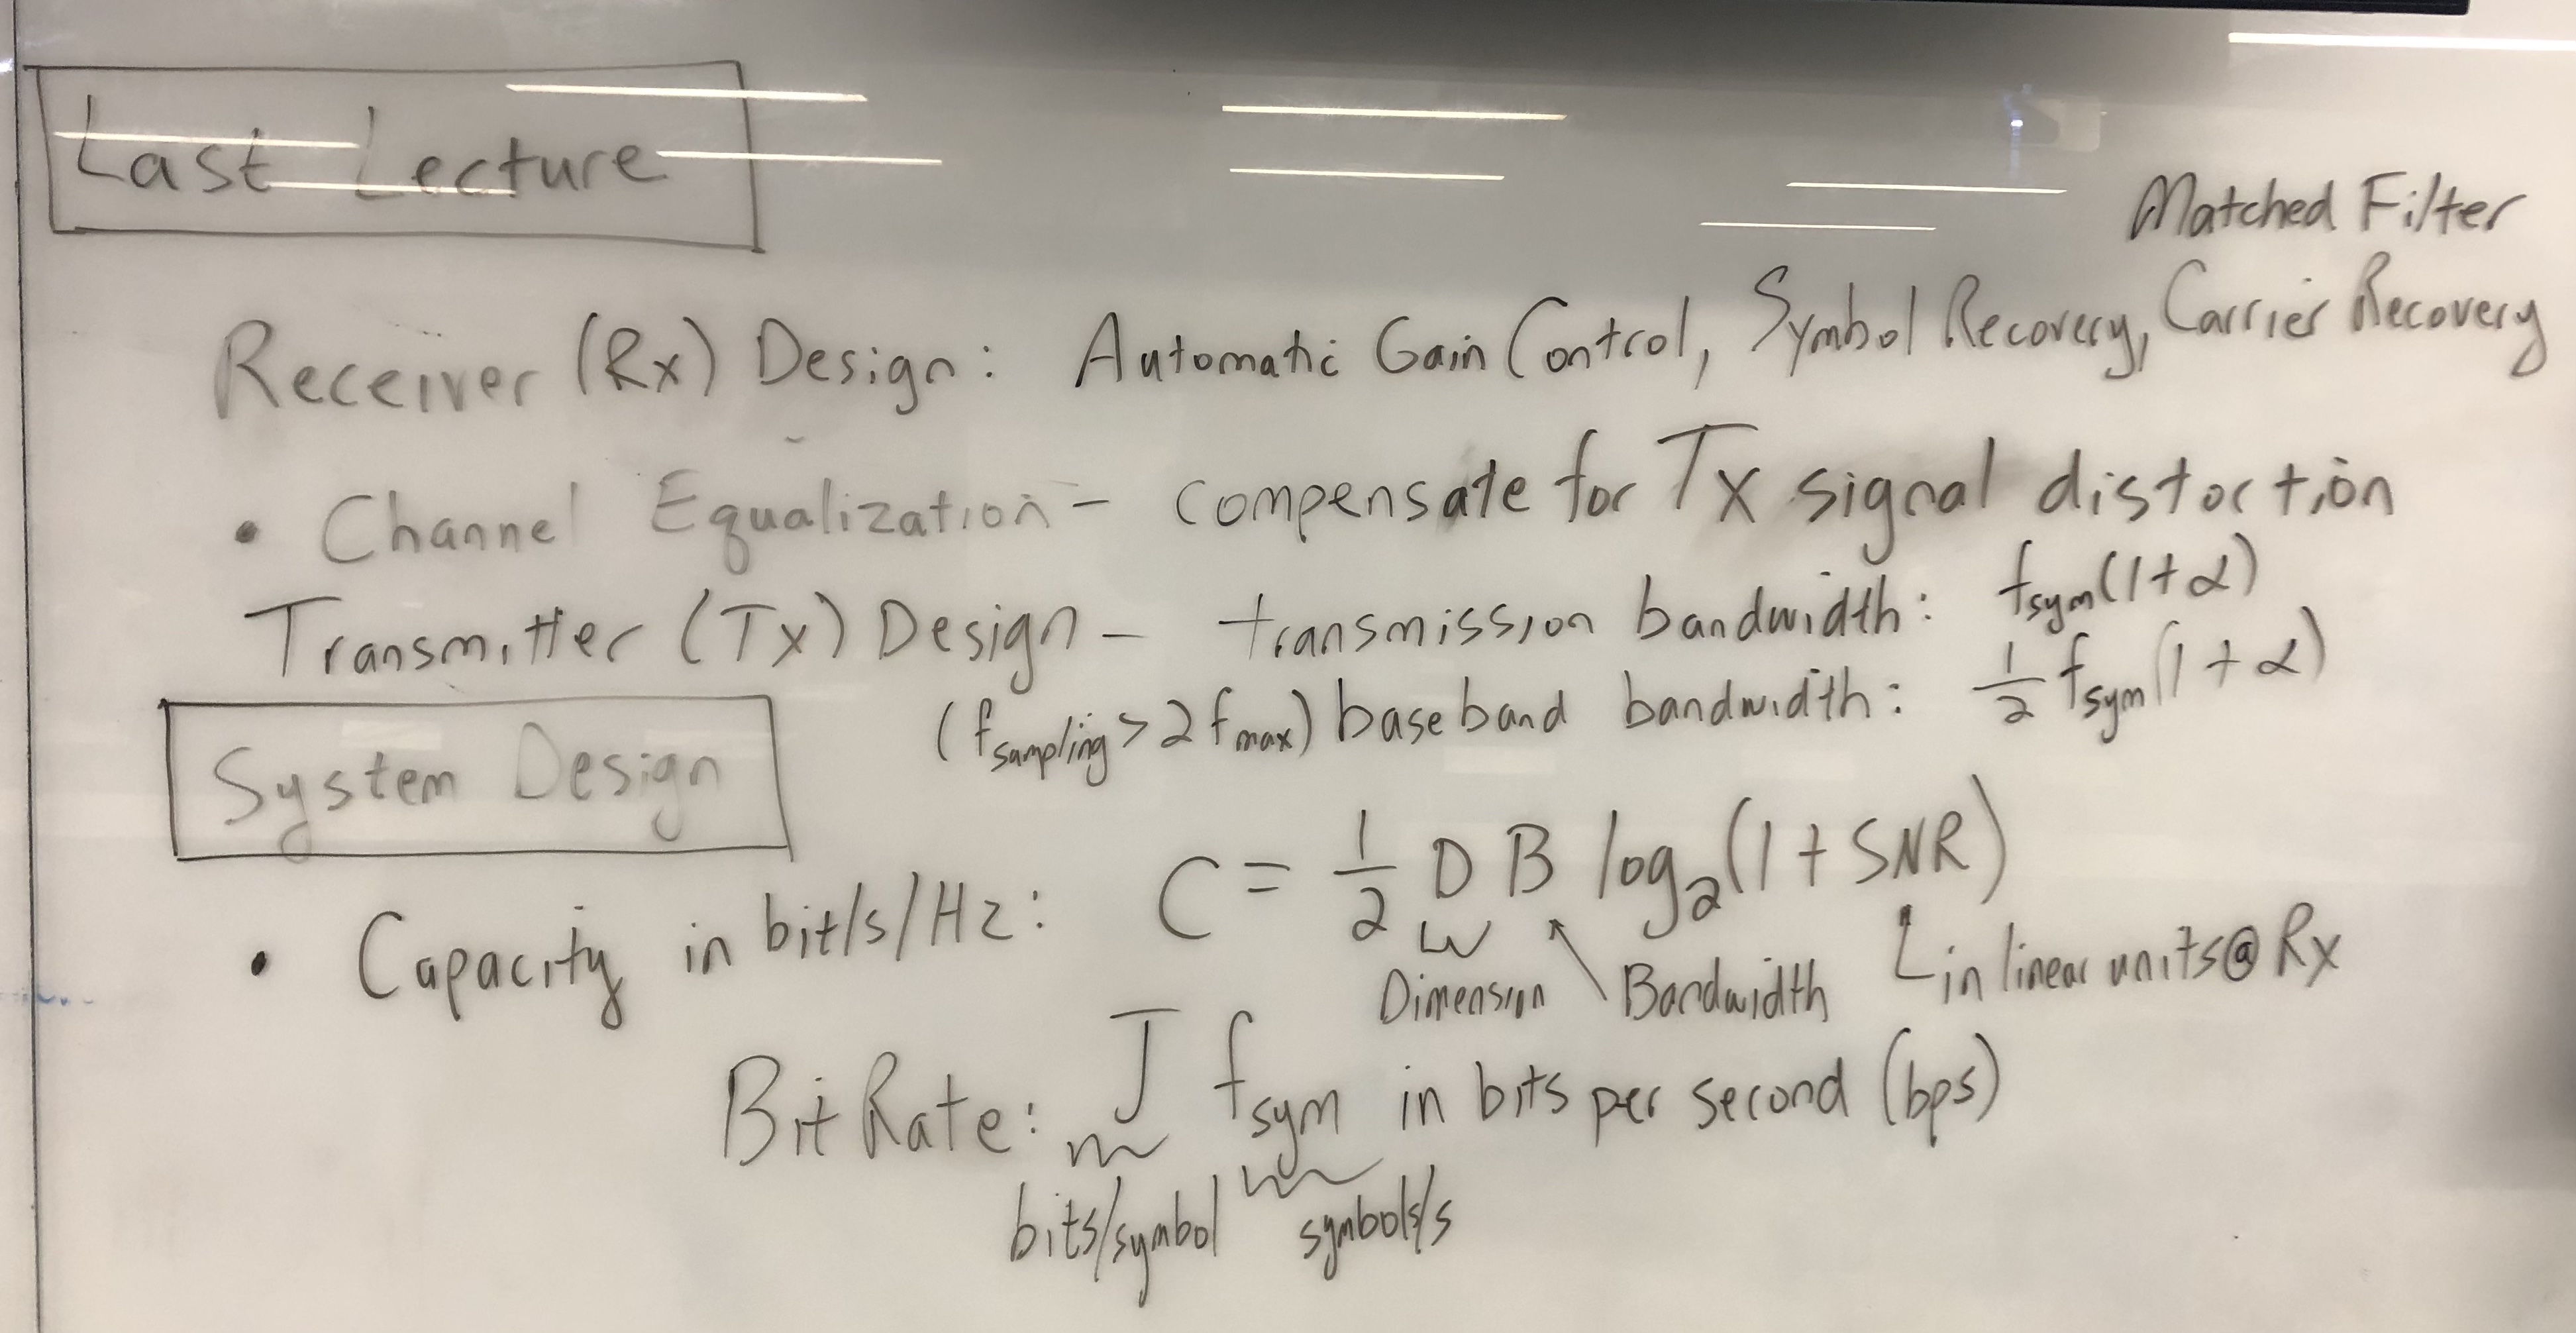 Last Lecture
Matched Filter
Receiver (Rx) Design: Automatic Gain Control, Symbol Recovery, Carrier Recovery
• Channel Equalization - compensate for Tx signal distortion
Transmitter (Tx) Design - transmission bandwidth: fsym(1+α)
(fsampling > 2 fmax) baseband bandwidth: 1/2 fsym(1+α)
System Design
• Capacity in bit/s/Hz: C = 1/2 D B log₂(1+SNR)
Dimension Bandwidth in linear units @ Rx
Bit Rate: J fsym in bits per second (bps)
bits/symbol symbols/s